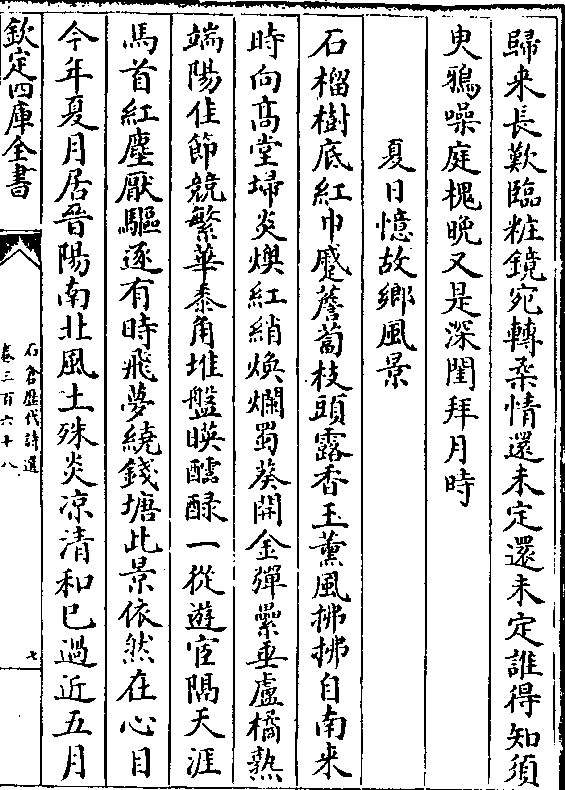 歸来長歎臨粧鏡宛轉柔情還未定還未定誰得知須
臾鴉噪庭槐晚又是深閨拜月時
夏日憶故鄉風景
石榴樹底紅巾蹙薝蔔枝頭露香玉薰風拂拂自南来
時向髙堂埽炎燠紅綃煥爛蜀葵開金彈纍垂盧橘熟
端陽佳節競繁華黍角堆盤暎醽醁一從遊宦隔天涯
馬首紅塵厭驅逐有時飛夢繞錢塘此景依然在心目
今年夏月居晉陽南北風土殊炎凉清和已過近五月
欽定四庫全書
石倉歴代詩選
卷三百六十八
七